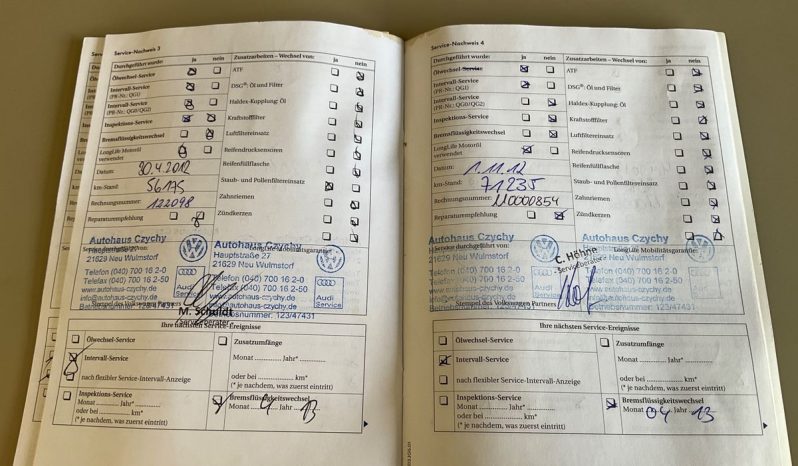 Service-Nachweis 3
Durchgeführt wurde: ja nein
Ölwechsel-Service
Intervall-Service
(PR-Nr.: QG1)
Intervall-Service
(PR-Nr.: QG0/QG2)
Inspektions-Service
Bremsflüssigkeitswechsel
LongLife Motoröl
verwendet
Datum: 30.4.2012
km-Stand: 56175
Rechnungsnummer: 122098
Reparaturempfehlung
Zusatzarbeiten – Wechsel von: ja nein
ATF
DSG®: Öl und Filter
Haldex-Kupplung: Öl
Kraftstofffilter
Luftfiltereinsatz
Reifendrucksensoren
Reifenfüllflasche
Staub- und Pollenfiltereinsatz
Zahnriemen
Zündkerzen
LongLife Mobilitätsgarantie
Autohaus Czychy
Hauptstraße 27
21629 Neu Wulmstorf
Telefon (040) 700 16 2-0
Telefax (040) 700 16 2-50
www.autohaus-czychy.de
info@autohaus-czychy.de
Betriebsnummer: 123/47431
Autohaus Czychy
Hauptstraße 27
21629 Neu Wulmstorf
Telefon (040) 700 16 2-0
Telefax (040) 700 16 2-50
www.autohaus-czychy.de
info@autohaus-czychy.de
Betriebsnummer: 123/47431
Audi
Service
Audi
Service
Stempel des Volkswagen Partners
M. Schuldt
Serviceberater
Ihre nächsten Service-Ereignisse
Ölwechsel-Service
Intervall-Service
nach flexibler Service-Intervall-Anzeige
Inspektions-Service
Monat ............ Jahr*
oder bei ............ km*
(* je nachdem, was zuerst eintritt)
Zusatzumfänge
Monat ............ Jahr*
oder bei ............ km*
(* je nachdem, was zuerst eintritt)
Bremsflüssigkeitswechsel
Monat 4 Jahr 13
Service-Nachweis 4
Durchgeführt wurde: ja nein
Ölwechsel-Service
Intervall-Service
(PR-Nr.: QG1)
Intervall-Service
(PR-Nr.: QG0/QG2)
Inspektions-Service
Bremsflüssigkeitswechsel
LongLife Motoröl
verwendet
Datum: 1.11.12
km-Stand: 71235
Rechnungsnummer: 110000854
Reparaturempfehlung
Zusatzarbeiten – Wechsel von: ja nein
ATF
DSG®: Öl und Filter
Haldex-Kupplung: Öl
Kraftstofffilter
Luftfiltereinsatz
Reifendrucksensoren
Reifenfüllflasche
Staub- und Pollenfiltereinsatz
Zahnriemen
Zündkerzen
Service durchgeführt von:
LongLife Mobilitätsgarantie:
Autohaus Czychy
Hauptstraße 27
21629 Neu Wulmstorf
Telefon (040) 700 16 2-0
Telefax (040) 700 16 2-50
www.autohaus-czychy.de
info@autohaus-czychy.de
Betriebsnummer: 123/47431
C. Höhne
- Serviceberater -
Autohaus Czychy
Hauptstraße 27
21629 Neu Wulmstorf
Telefon (040) 700 16 2-0
Telefax (040) 700 16 2-50
www.autohaus-czychy.de
info@autohaus-czychy.de
Betriebsnummer: 123/47431
Audi
Service
Stempel des Volkswagen Partners
Ihre nächsten Service-Ereignisse
Ölwechsel-Service
Intervall-Service
nach flexibler Service-Intervall-Anzeige
Inspektions-Service
Monat ............ Jahr*
oder bei ............ km*
(* je nachdem, was zuerst eintritt)
Zusatzumfänge
Monat ............ Jahr*
oder bei ............ km*
(* je nachdem, was zuerst eintritt)
Bremsflüssigkeitswechsel
Monat 04 Jahr 13